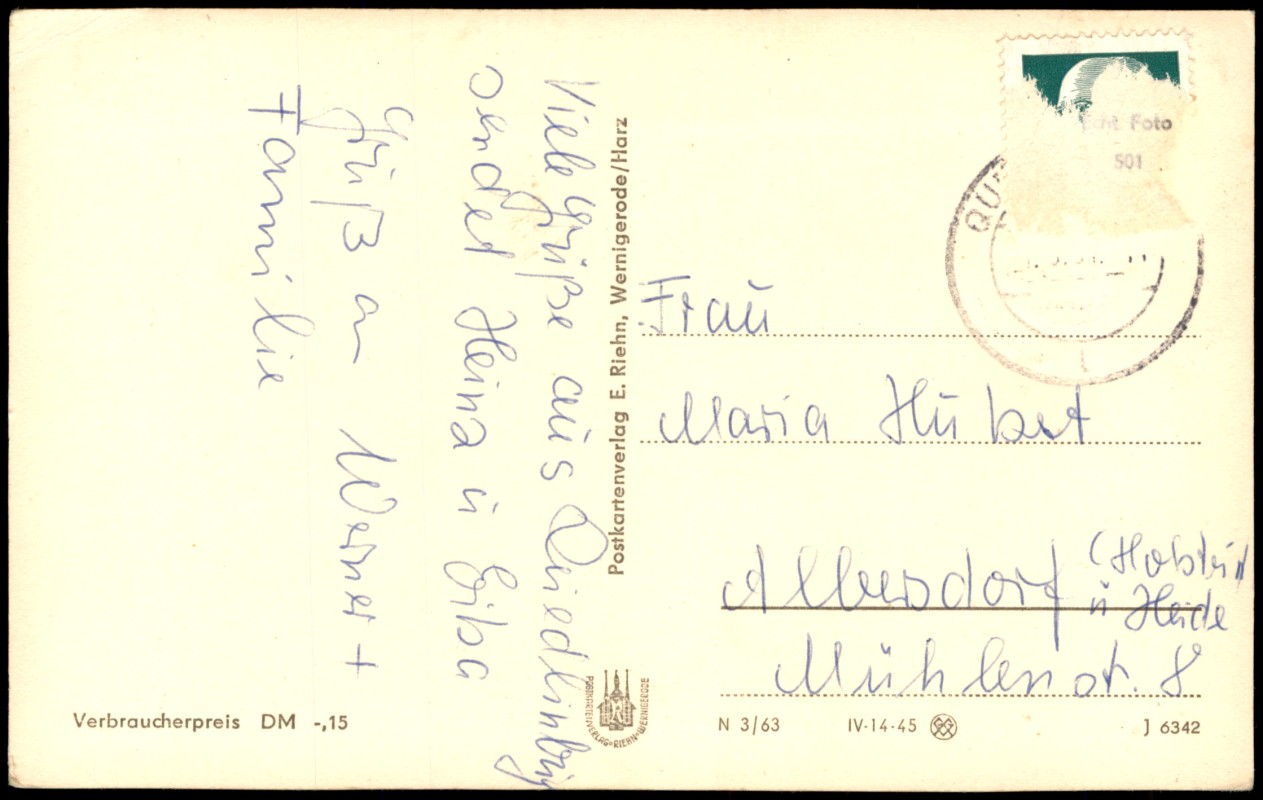 Viele Grüße aus Quedlinburg
sendet Heina u Giba
Grüß an Werner +
Familie
Postkartenverlag E. Riehn, Wernigerode/Harz
Echt Foto
501
QU
Frau
Maria Hübert
Albersdorf (Holstein
ü Heide
Mühlenstr. 8
POSTKARTENVERLAG•RIEHN•WERNIGERODE
Verbraucherpreis DM -,15
N 3/63 IV-14-45
J 6342